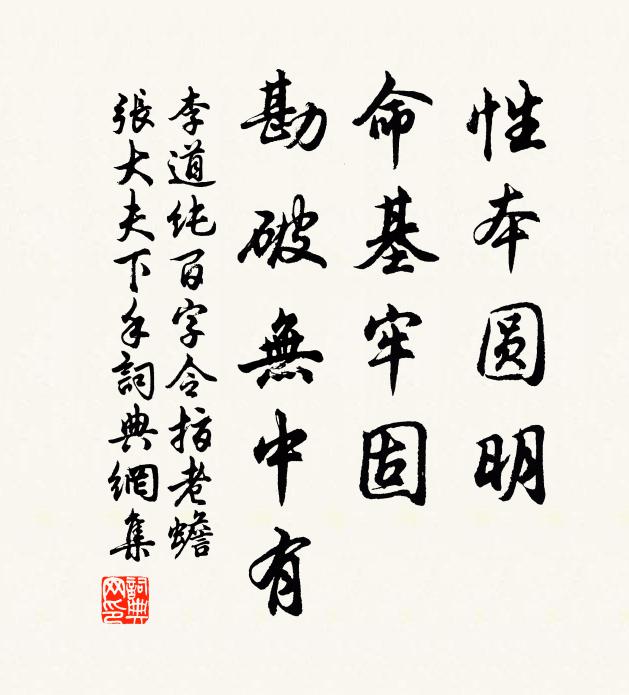 性本圆明
命基牢固
勘破無中有
李道纯百字令指老蟾
張大夫下手詞典網集
詞典
网印